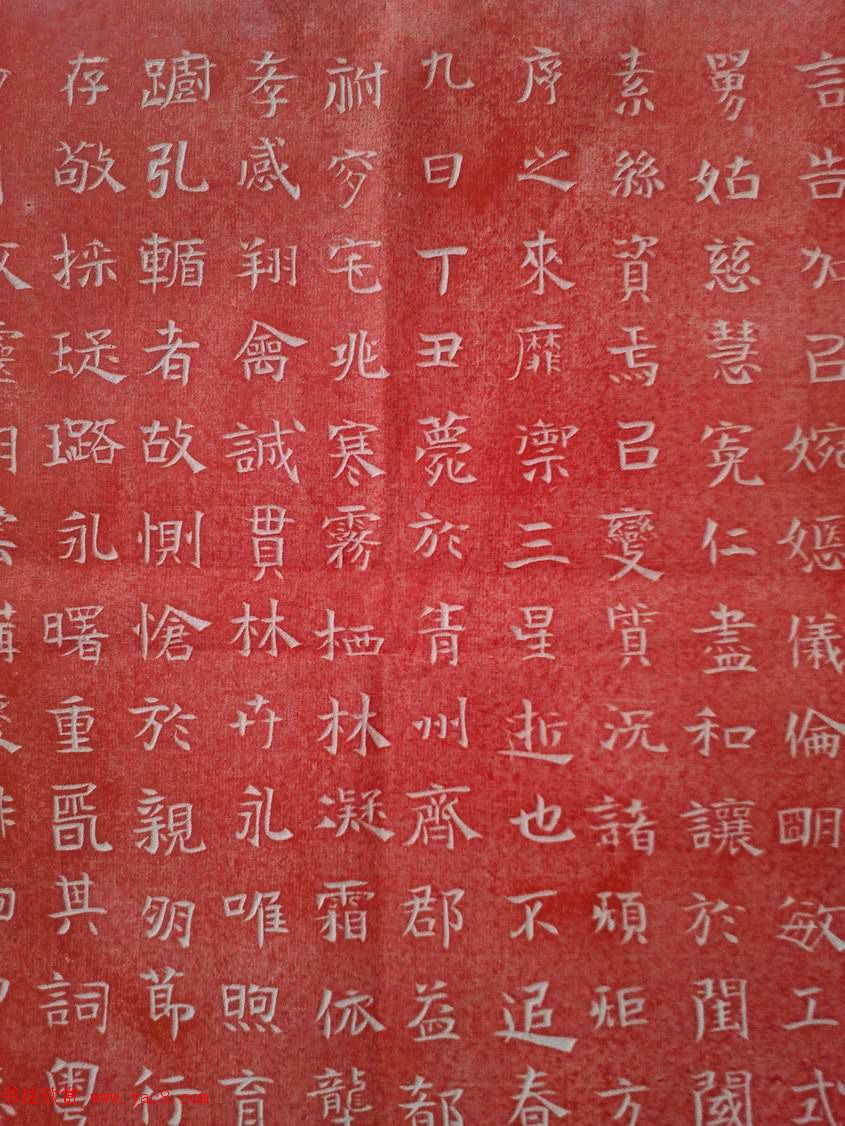 言告召婉嫕儀倫明敏工式
舅姑慈慧寬仁盡和讓於閨閾
素絲資焉召變質況諸煩炬方
序之來靡禦三星逝也不追春
九日丁丑薨於青州齊郡益都
祔窆宅兆寒霧栖林凝霜依壟
孝感翔禽誠貫林卉永唯煦育
躕引輴者故惻愴於親朋節行
存敬採琁璐永曙重其詞粵